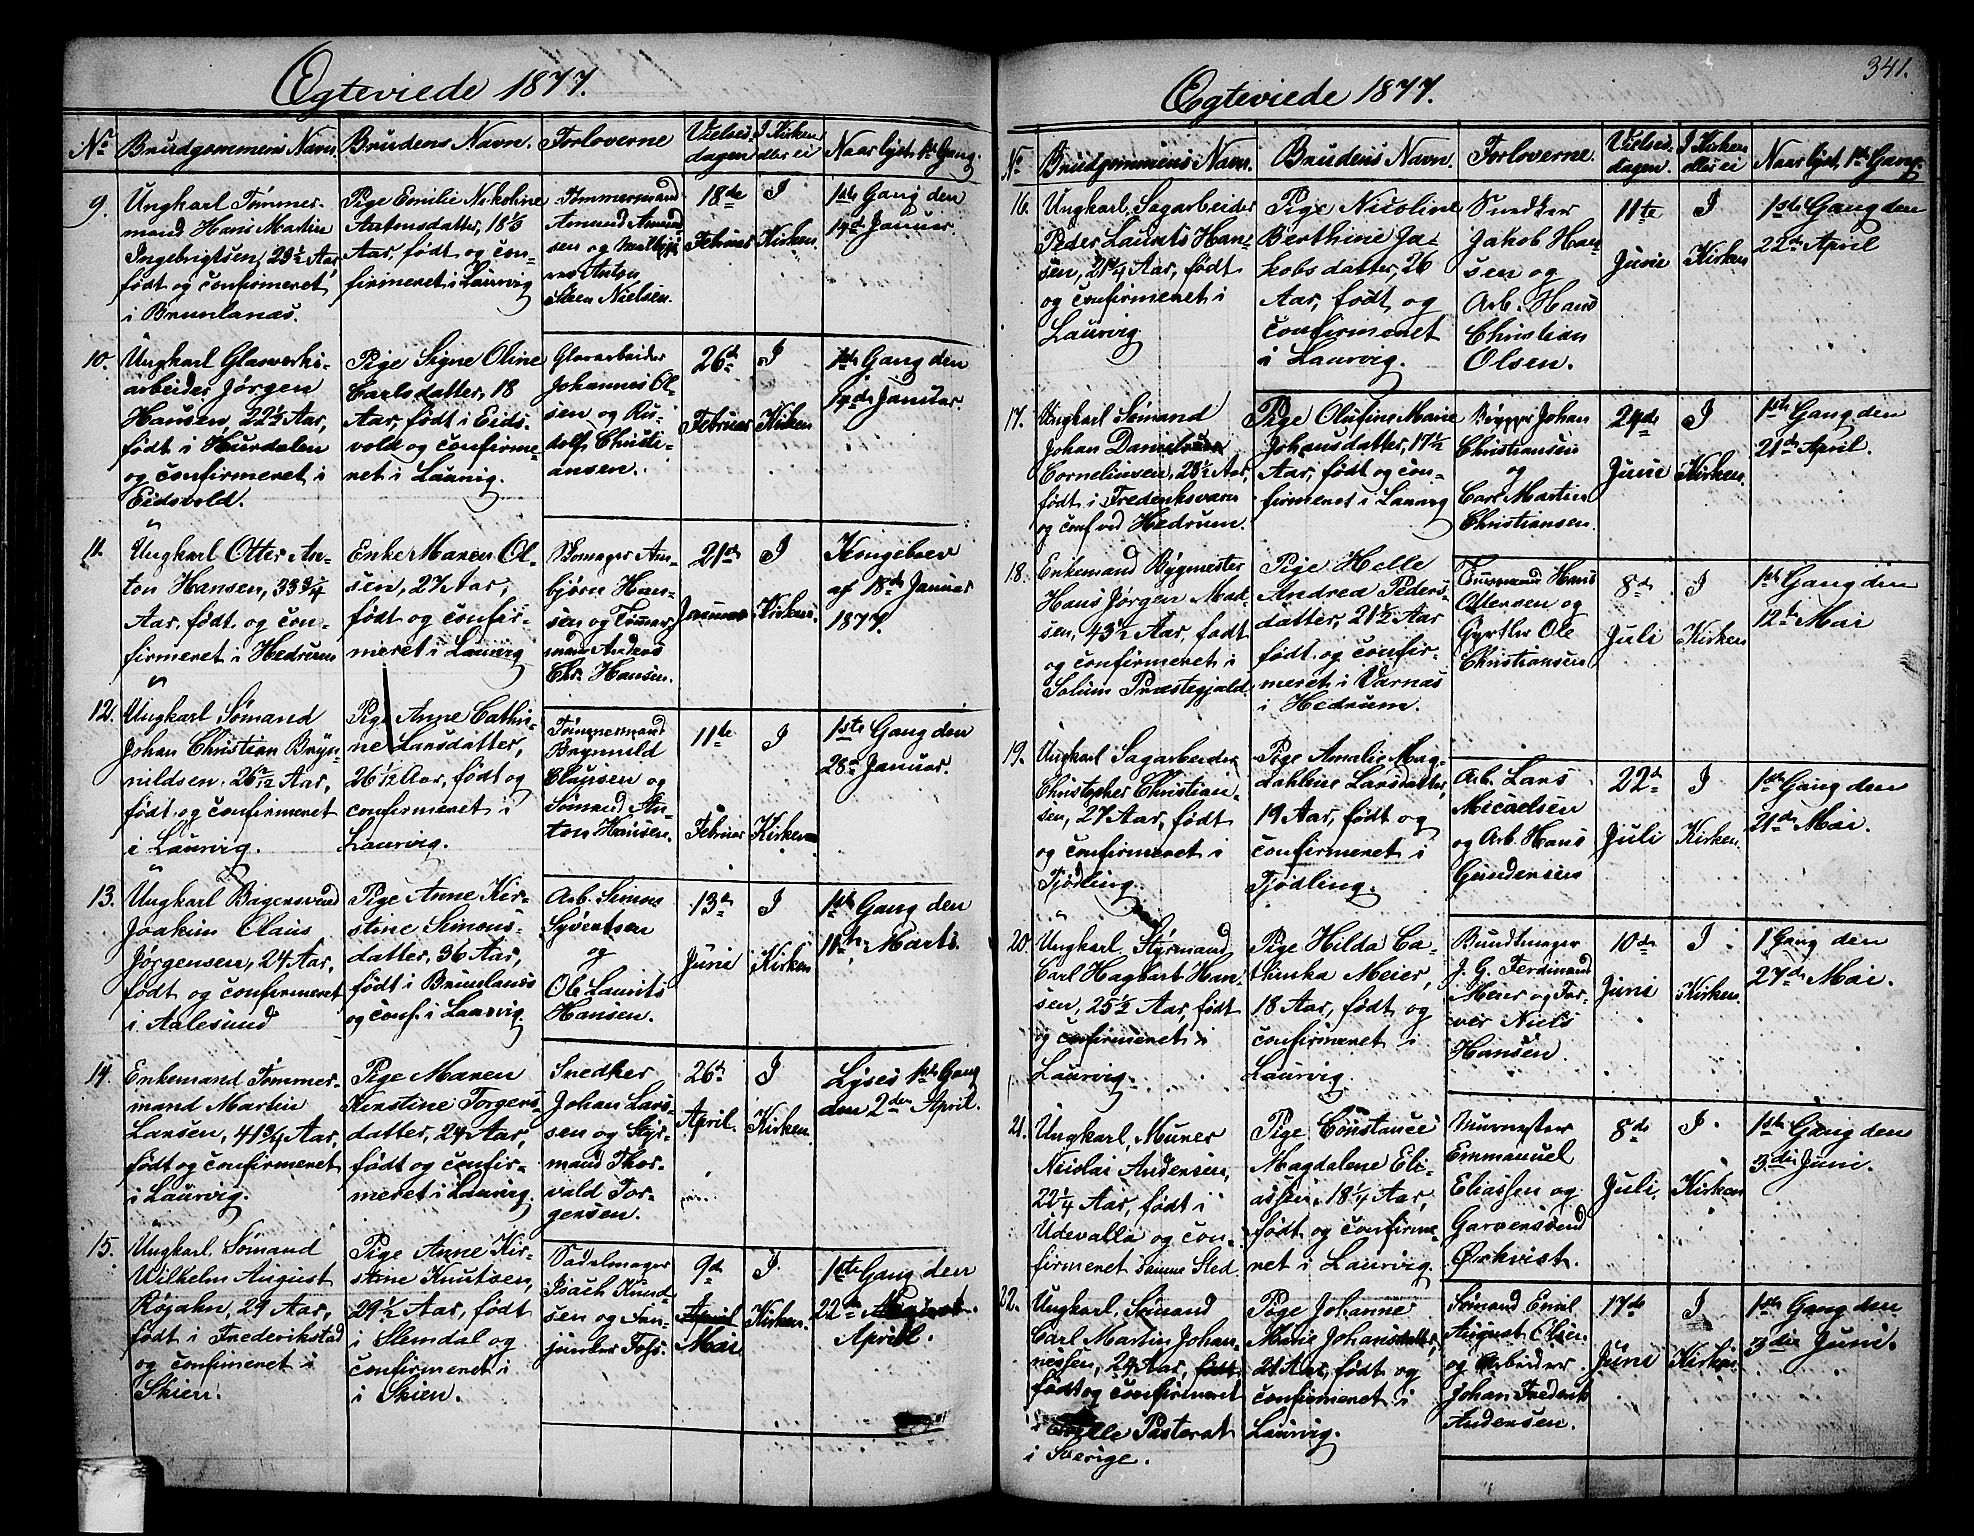 Ægteviede 1877.
No
Brudgommens Navn.
Brudens Navn.
Forloverne
Vielses-
dagen
I Kirken
eller ei
Naar lyst 1ste Gang.
9.
Ungkarl Tømmer-
mand Hans Martin
Ingebrigtsen, 29½ Aar
født og confirmeret
i Brunlanæs.
Pige Emilie Nikoline
Antonsdatter, 18⅓
Aar, født og con-
firmeret i Laurvig
Tømmermand
Amund Amund-
sen og
Anton
Steen Nielsen.
18de
Februar
I
Kirken.
1ste Gang den
14de Januar.
10.
Ungkarl Glasverks-
arbeider Jørgen
Hansen, 22½ Aar,
født i Hurdalen
og confirmeret i
Eidsvold.
Pige Signe Oline
Carlsdatter, 18
Aar, født i Eids-
vold og confirme-
ret i Laurvig.
Glasarbeider
Johannes Ol-
sen og Ru-
dolf Christi-
ansen.
26de
Februar
I
Kirken
1ste Gang den
14de Januar.
11.
Ungkarl Otter An-
ton Hansen, 33¾
Aar, født og con-
firmeret i Hedrum
Enke Maren Ol-
sen, 27 Aar,
født og confir-
meret i Laurvig
Skomager Am-
bjørn Han-
sen og Tømer-
mand Anders
Chr. Hansen.
21de
Januar
I
Kirken.
Kongebrev
af 18de Januar
1877.
12.
Ungkarl Sømand
Johan Christian Bryn-
nildsen, 26 Aar,
født og confirmeret
i Laurvig.
Pige Anne Cathri-
ne Larsdatter,
26 1/12 Aar, født og
confirmeret i
Laurvig.
Tømmermand
Brynnild
Clausen og
Sømand An-
ton Hansen.
11te
Februar
I
Kirken
1ste Gang den
28de Januar.
13.
Ungkarl Bagersvend
Joakim Olaus
Jørgensen, 24 Aar,
født og confirmeret
i Aalesund
Pige Anne Kir-
stine Simons-
datter, 36 Aar,
født i Brunlanæs
og conf. i Laurvig.
Arb. Simon
Syvertsen
og
Ole Laurits
Hansen.
13de
Juni
I
Kirken
1ste Gang den
11te Marts.
14.
Enkemand Tømmer-
mand Martin
Larsen, 41¾ Aar,
født og confirmeret
i Laurvig.
Pige Maren
Kirstine Torgers-
datter, 24 Aar,
født og confir-
meret i Laurvig.
Snedker
Johan Lars-
sen og Styr-
mand Thor-
vald Tor-
gersen.
26de
April.
I
Kirken.
Lyses 1ste Gang
den 2den April.
15.
Ungkarl Sømand
Wilhelm August
Røjahn, 29 Aar,
født i Frederikstad
og confirmeret i
Skien.
Pige Anne Kir-
stine Knutsen,
29½ Aar, født
i Slemdal og
confirmeret i
i Skien.
Sadelmager
Isach Knud-
sen og
9de
April
Mai
I
Kirken.
1ste Gang den
22de
April.
341.
Ægteviede 1877.
No
Brudgommens Navn.
Brudens Navn.
Forloverne.
Vielses-
dagen.
I Kirken
eller ei
Naar lyst 1ste Gang.
16.
Ungkarl, Sagarbeider
Peder Laurits Han-
sen, 21¼ Aar, født
og confirmeret i
Laurvig
Pige Nicoline
Berthine Ja-
kobsdatter, 26
Aar, født og
confirmeret
i Laurvig.
Snedker
Jakob Han-
sen og
Arb. Hans
Christian
Olsen.
11te
Juni
I
Kirken
1ste Gang den
22de April
17.
Ungkarl Sømand
Johan
Corneliusen, 28½ Aar,
født i Frederiksværn
og conf ved Hedrum.
Pige Olufine Marie
Johansdatter, 17½
Aar, født og con-
firmeret i Laurvig
Brygger Johan
Christiansen
og
Carl Martin
Christiansen.
24de
Juni
I
Kirken.
1ste Gang den
21de April.
18.
Enkemand Bygmester
Hans Jørgen Mad-
sen, 43½ Aar, født
og confirmeret i
Solum Præstegjæld.
Pige Helle
Andrea Peders-
datter, 21½ Aar
født og confir-
meret i Varnæs
i Hedrum.
Tømmermand Hans
Ottersen og
Gjørtler Ole
Christiansen
8de
Juli
I
Kirken
1ste Gang den
12te Mai
19.
Ungkarl Sagarbeider
Christopher Christian-
sen, 27 Aar, født
og confirmeret i
Tjødling.
Pige Amalie Mag-
dalene Larsdatter,
19 Aar, født og
confirmeret i
Tjødling.
Arb. Lars
Micaelsen
og Arb. Hans
Gundersen
22de
Juli
I
Kirken.
1ste Gang den
21de Mai.
20.
Ungkarl Styrmand
Carl Hagbart Han-
sen, 25½ Aar, født
og confirmeret i
Laurvig.
Pige Hilda Ca-
thinka Meier,
18 Aar, født og
confirmeret i
Laurvig.
Bundtmager
J. G. Ferdinand
Meier og Far-
ver Niels
Hansen.
10de
Juni
I
Kirken.
1 Gang den
27de Mai.
21.
Ungkarl, Murer
Nicolai Andersen,
22¼ Aar, født i
Udevalla og con-
firmeret samme Sted.
Pige Constance
Magdalene Eli-
assen, 18¼ Aar,
født og confirme-
ret i Laurvig.
Murmester
Emmanuel
Eliassen og
Garversvend
Ørkvist.
8de
Juli
I
Kirken
1ste Gang den
3die Juni.
22.
Ungkarl, Sømand
Carl Martin Johan-
nessen, 24 Aar, født
født og confirmeret
i Pastorat
i Sverige.
Pige Johanne
Marie Johansdatter,
21 Aar, født og
confirmeret i
Laurvig.
Sømand Emil
August Elsen
og Arbeider
Johan Frederik
Andersen.
17de
Juni
I
Kirken.
1ste Gang den
3die Juni.